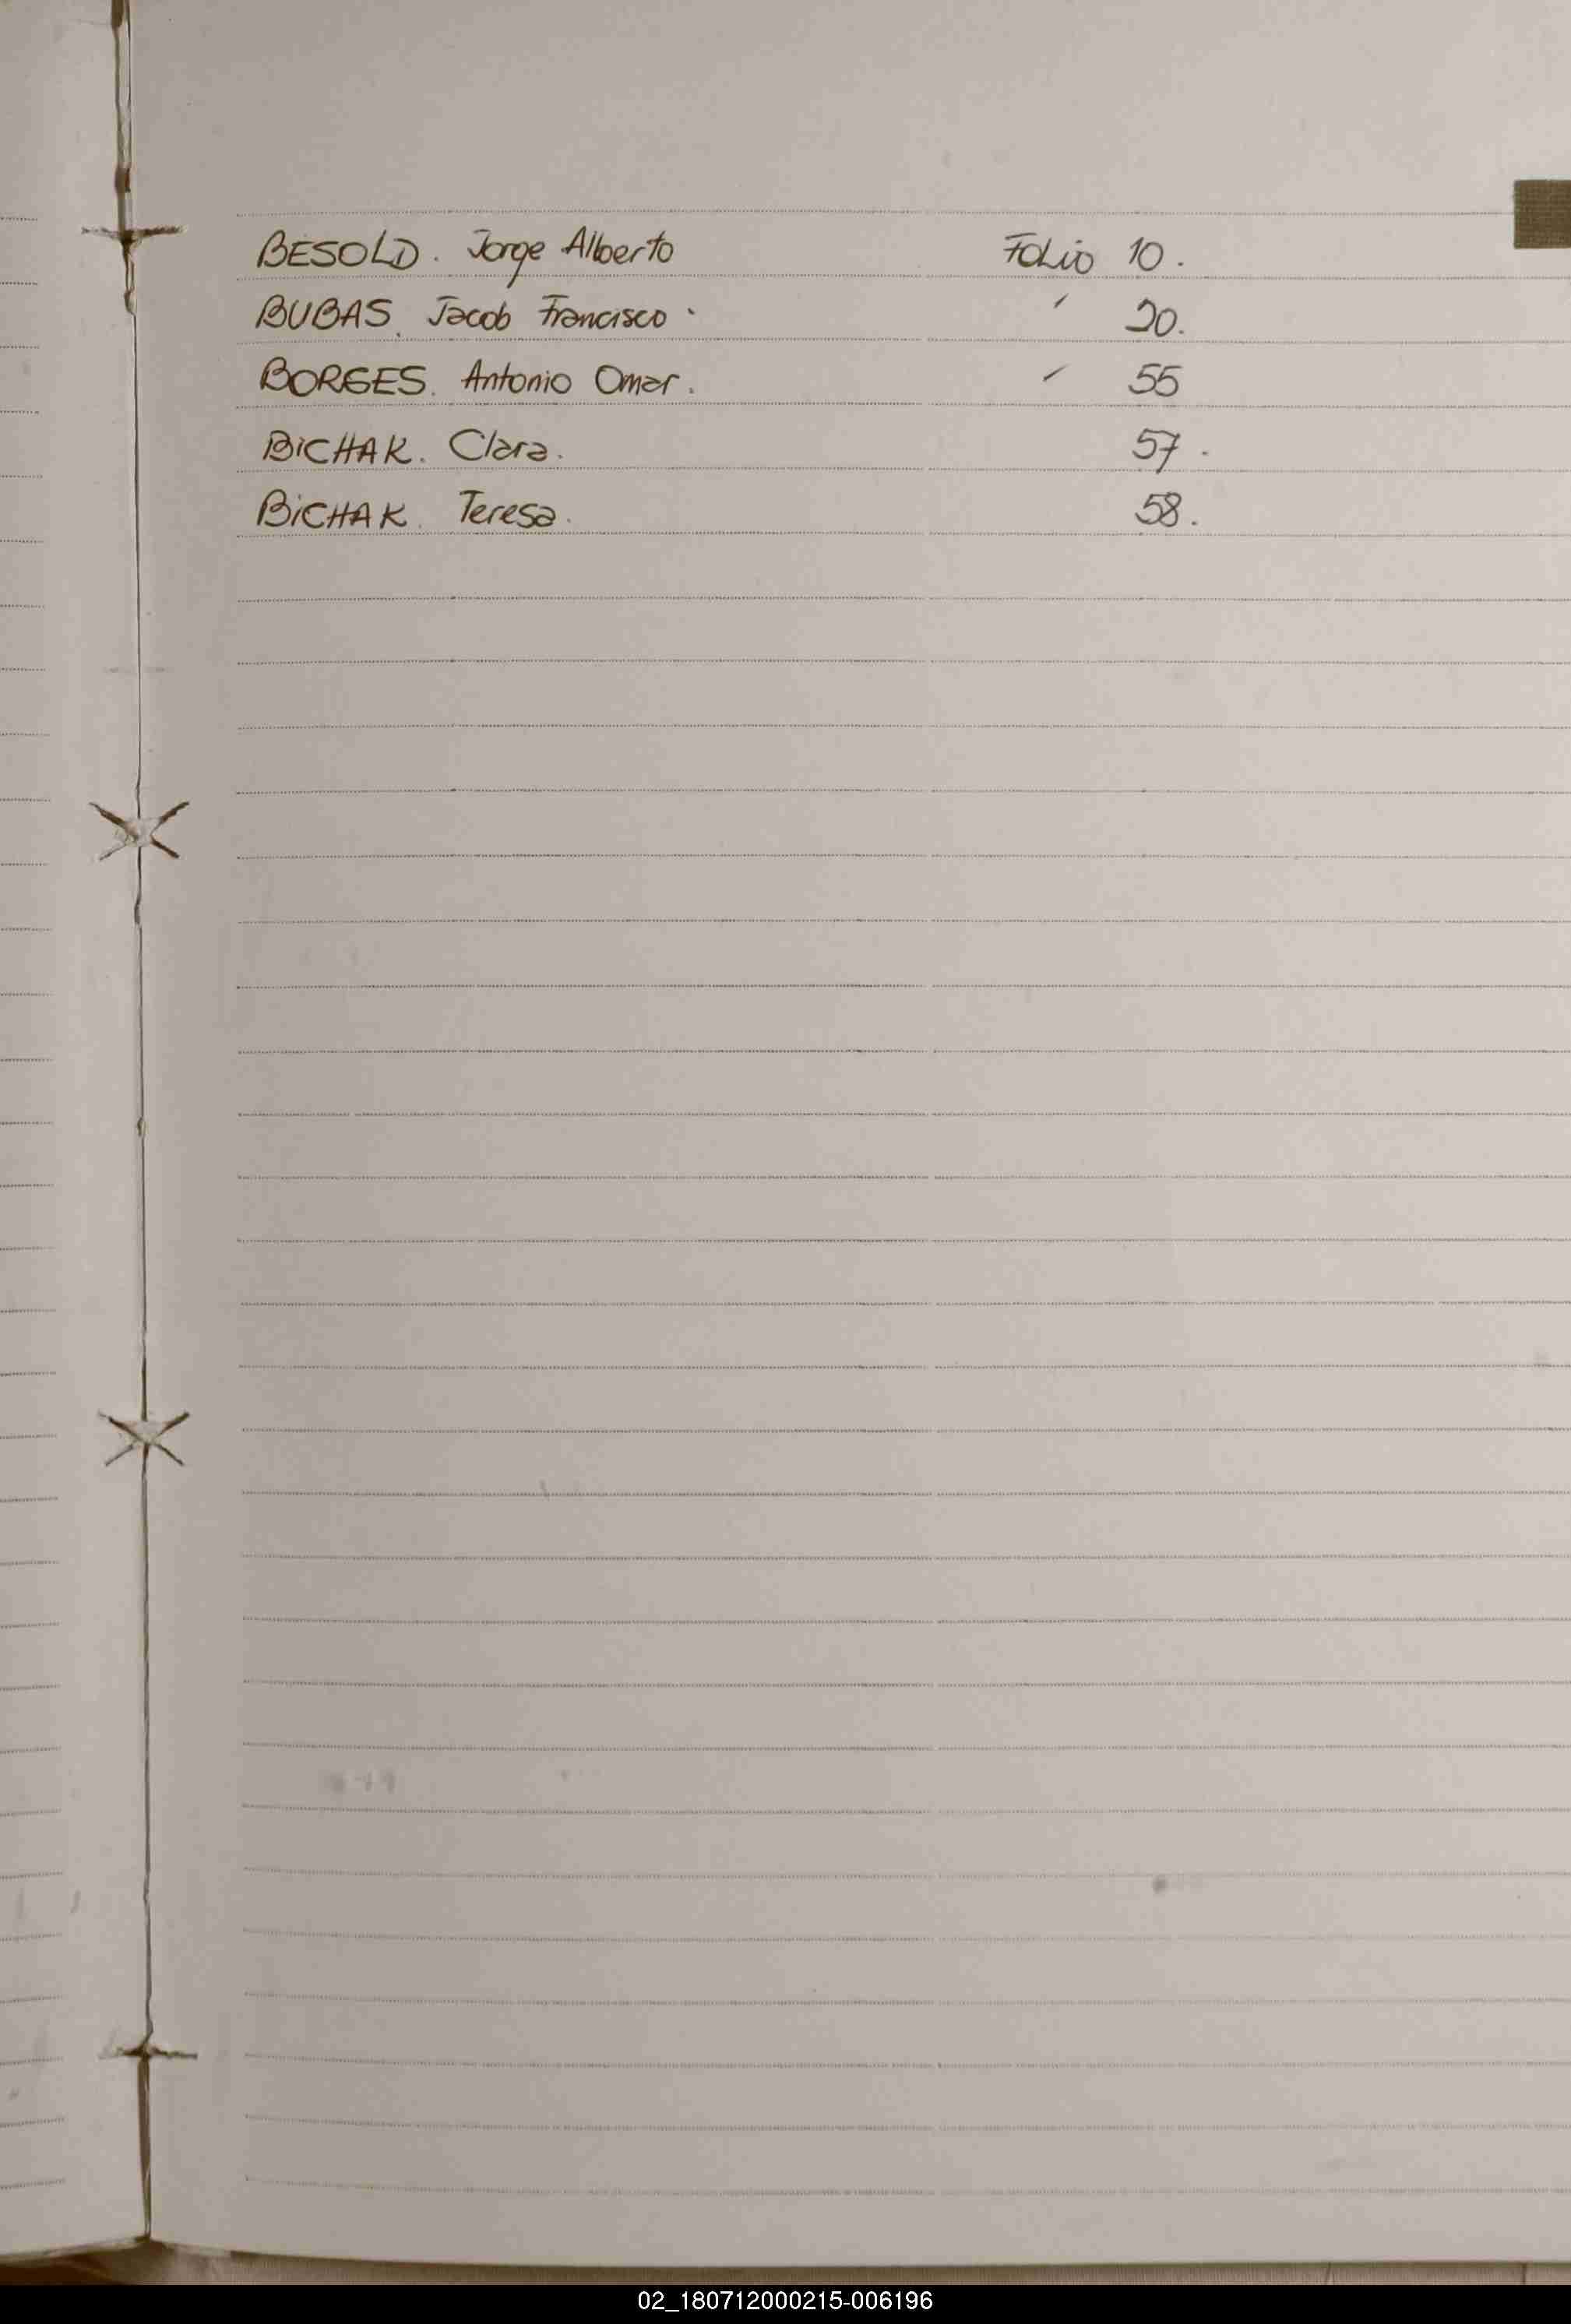 BESOLD. Jorge Alberto Folio 10.
BUBAS. Jacob Francisco. ″ 20.
BORGES. Antonio Omar. ″ 55
BICHAK. Clara. 57.
BICHAK. Teresa. 58.
02_180712000215-006196